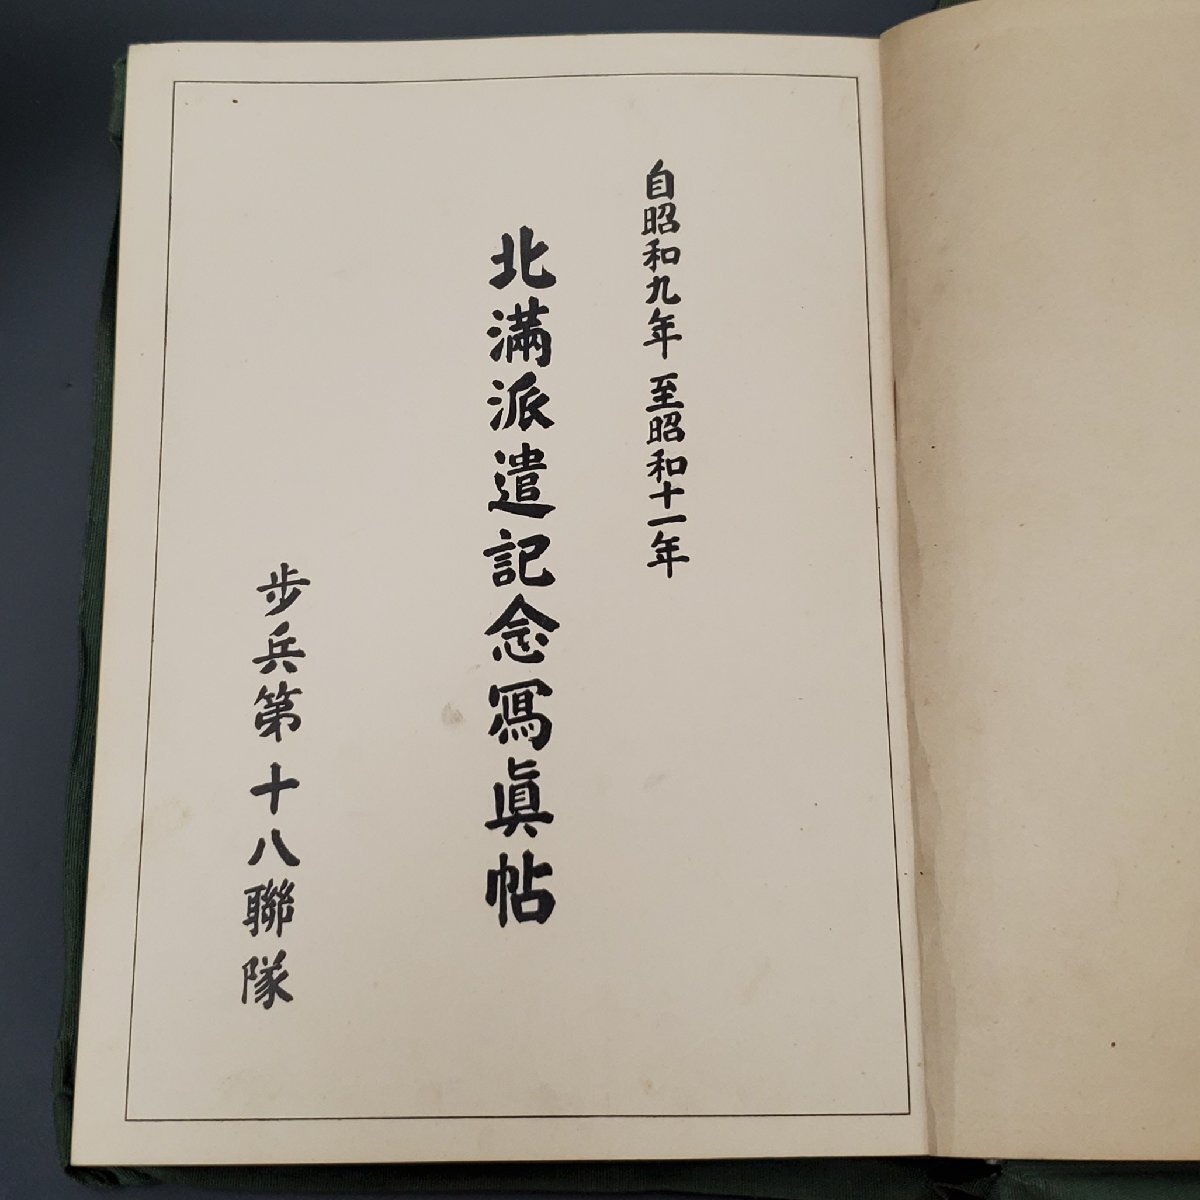 自昭和九年 至昭和十一年
北滿派遣記念寫眞帖
步兵第十八聯隊